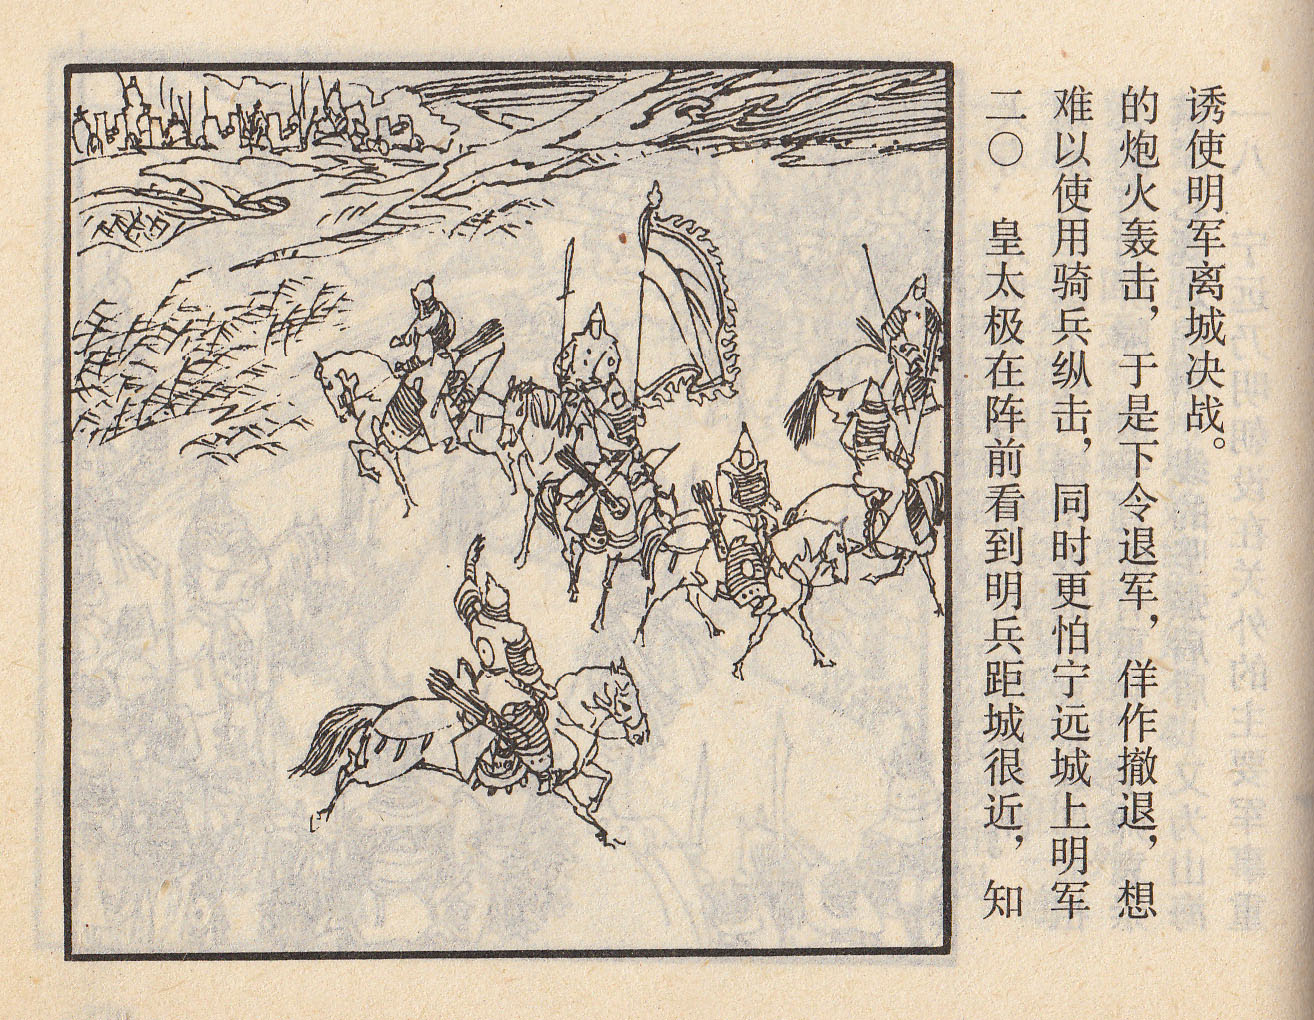 二〇　皇太极在阵前看到明兵距城很近，知
难以使用骑兵纵击，同时更怕宁远城上明军
的炮火轰击，于是下令退军，佯作撤退，想
诱使明军离城决战。